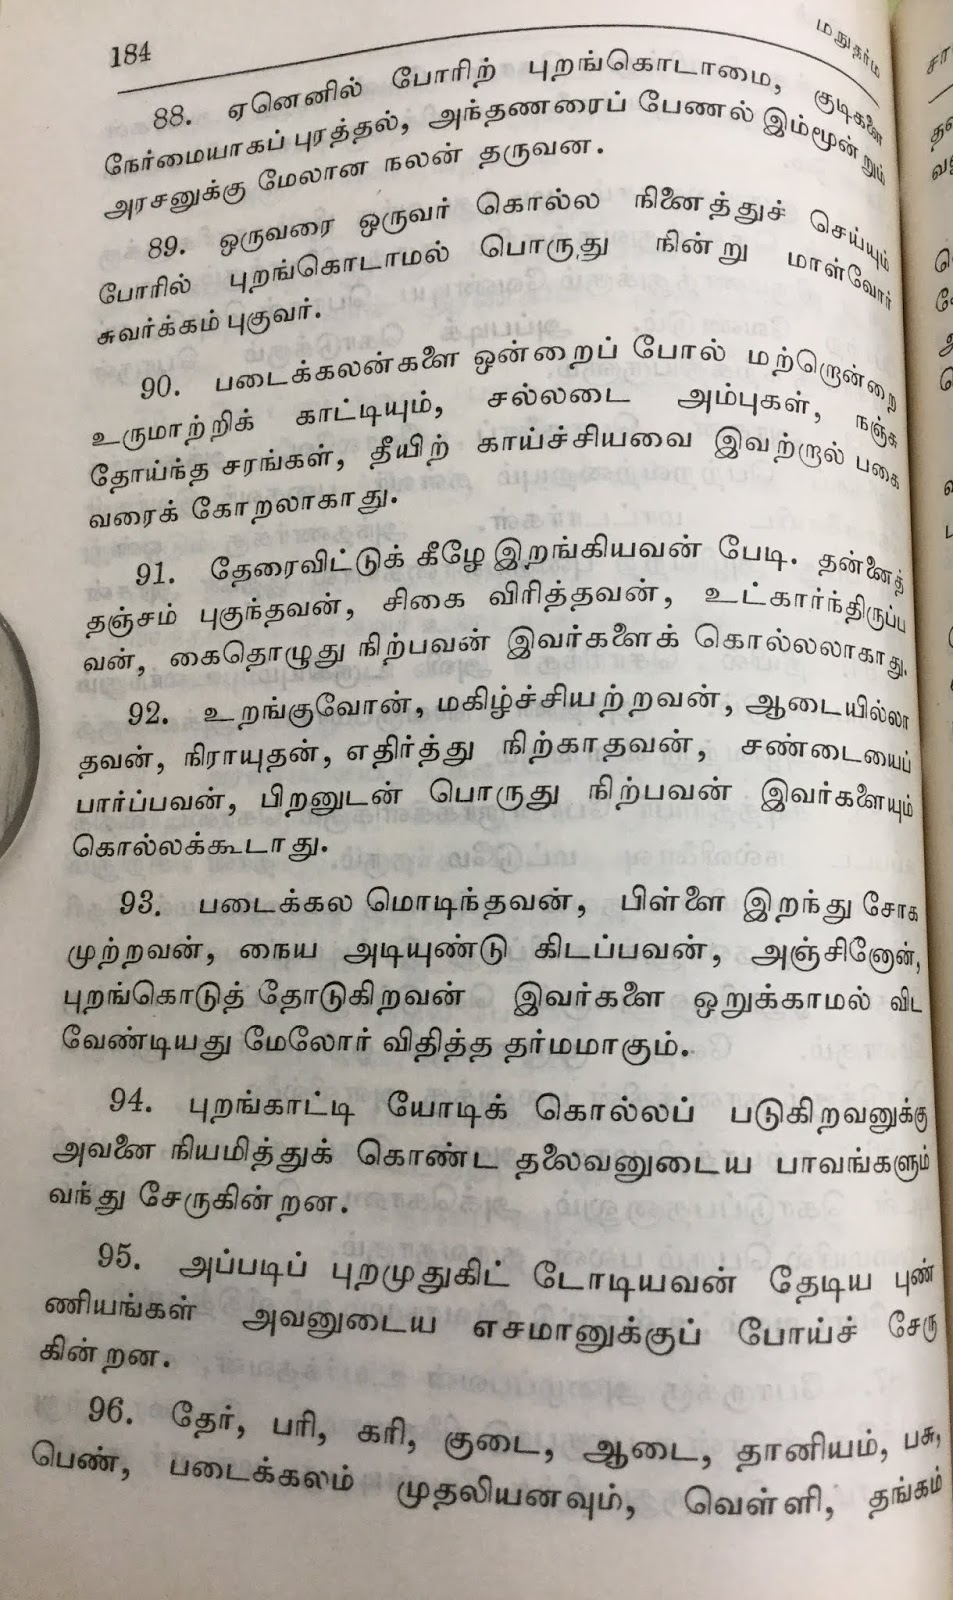 184
மநுதர்ம
88. ஏனெனில் போரிற் புறங்கொடாமை, குடிகளை
நேர்மையாகப் புரத்தல், அந்தணரைப் பேணல் இம்மூன்றும்
அரசனுக்கு மேலான நலன் தருவன.
89. ஒருவரை ஒருவர் கொல்ல நினைத்துச் செய்யும்
போரில் புறங்கொடாமல் பொருது நின்று மாள்வோர்
சுவர்க்கம் புகுவர்.
90. படைக்கலன்களை ஒன்றைப் போல் மற்றொன்றை
உருமாற்றிக் காட்டியும், சல்லடை அம்புகள், நஞ்சு
தோய்ந்த சரங்கள், தீயிற் காய்ச்சியவை இவற்றால் பகை
வரைக் கோறலாகாது.
91. தேரைவிட்டுக் கீழே இறங்கியவன் பேடி. தன்னைத்
தஞ்சம் புகுந்தவன், சிகை விரித்தவன், உட்கார்ந்திருப்ப
வன், கைதொழுது நிற்பவன் இவர்களைக் கொல்லலாகாது.
92. உறங்குவோன், மகிழ்ச்சியற்றவன், ஆடையில்லா
தவன், நிராயுதன், எதிர்த்து நிற்காதவன், சண்டையைப்
பார்ப்பவன், பிறனுடன் பொருது நிற்பவன் இவர்களையும்
கொல்லக்கூடாது.
93. படைக்கல மொடிந்தவன், பிள்ளை இறந்து சோக
முற்றவன், நைய அடியுண்டு கிடப்பவன், அஞ்சினோன்,
புறங்கொடுத் தோடுகிறவன் இவர்களை ஒறுக்காமல் விட
வேண்டியது மேலோர் விதித்த தர்மமாகும்.
94. புறங்காட்டி யோடிக் கொல்லப் படுகிறவனுக்கு
அவனை நியமித்துக் கொண்ட தலைவனுடைய பாவங்களும்
வந்து சேருகின்றன.
95. அப்படிப் புறமுதுகிட் டோடியவன் தேடிய புண்
ணியங்கள் அவனுடைய எசமானுக்குப் போய்ச் சேரு
கின்றன.
96. தேர், பரி, கரி, குடை, ஆடை, தானியம், பசு,
பெண், படைக்கலம் முதலியனவும், வெள்ளி, தங்கம்